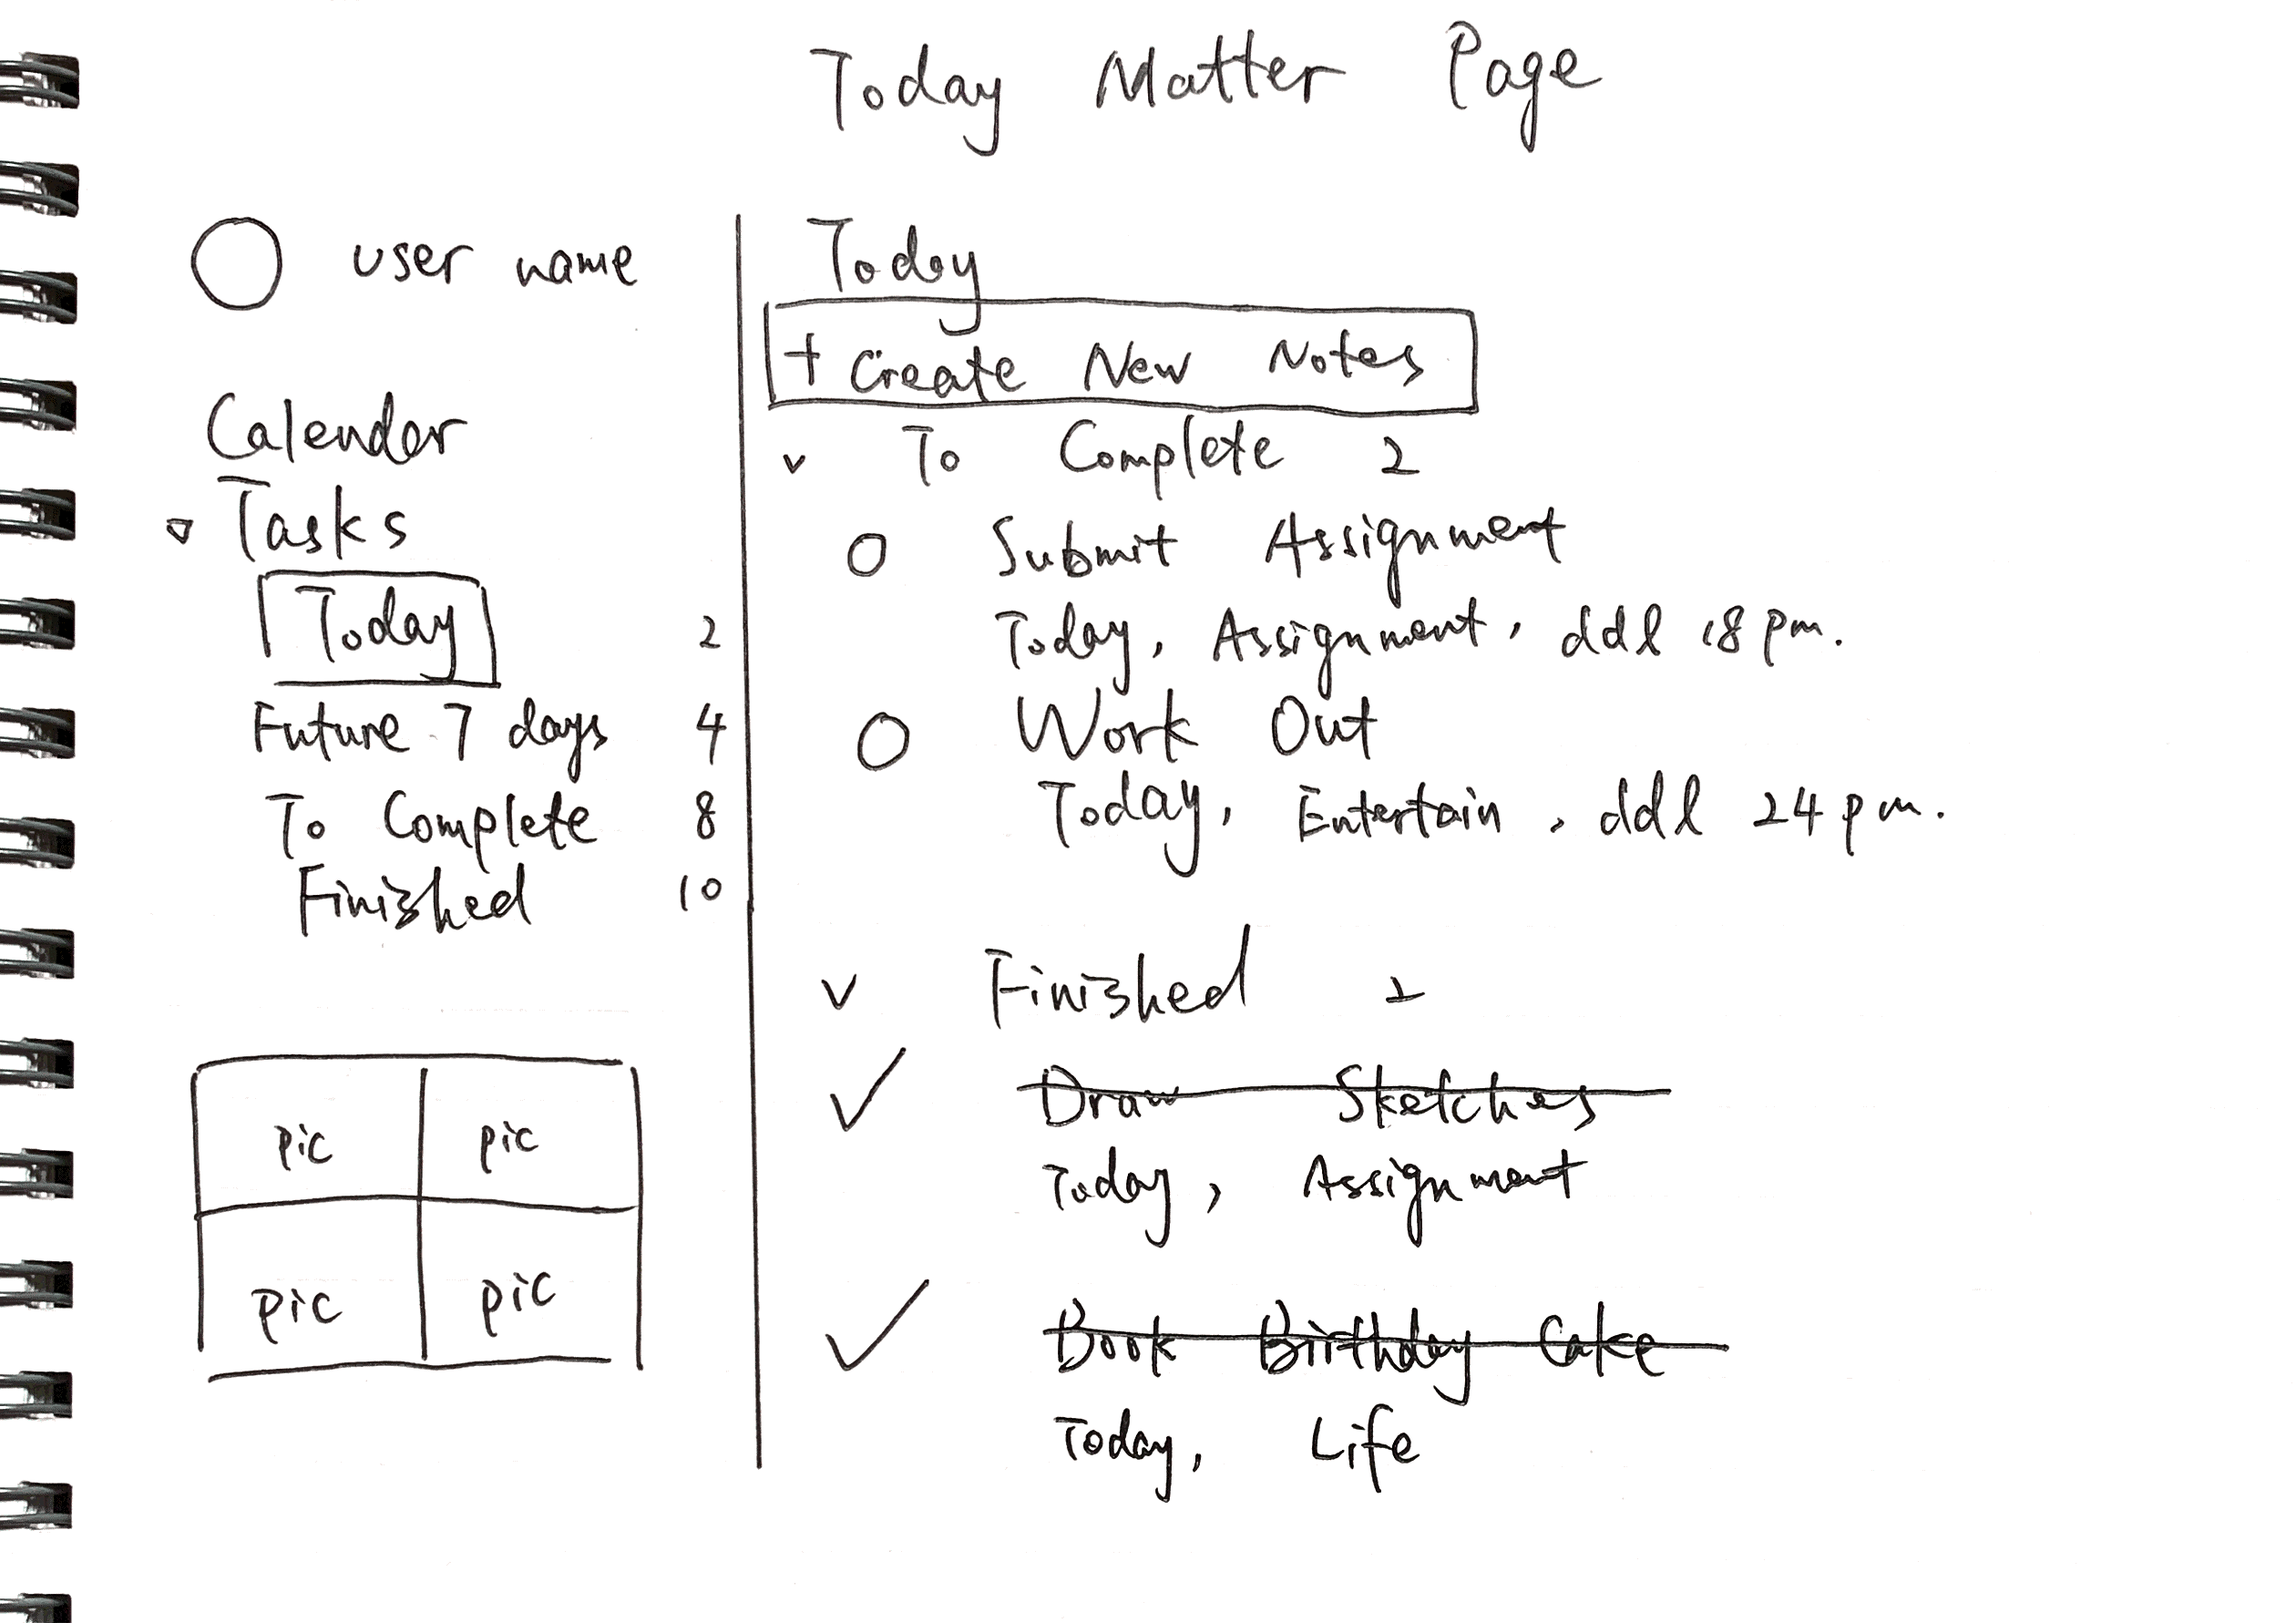 Today Matter Page
user name
Calender
Tasks
Today 2
Future 7 days 4
To Complete 8
Finished 10
pic pic
pic pic
Today
+ Create New Notes
v To Complete 2
Submit Assignment
Today, Assignment, ddl 18 pm.
Work Out
Today, Entertain, ddl 24 pm.
v Finished 2
Draw Sketches
Today, Assignment
Book Birthday Cake
Today, Life